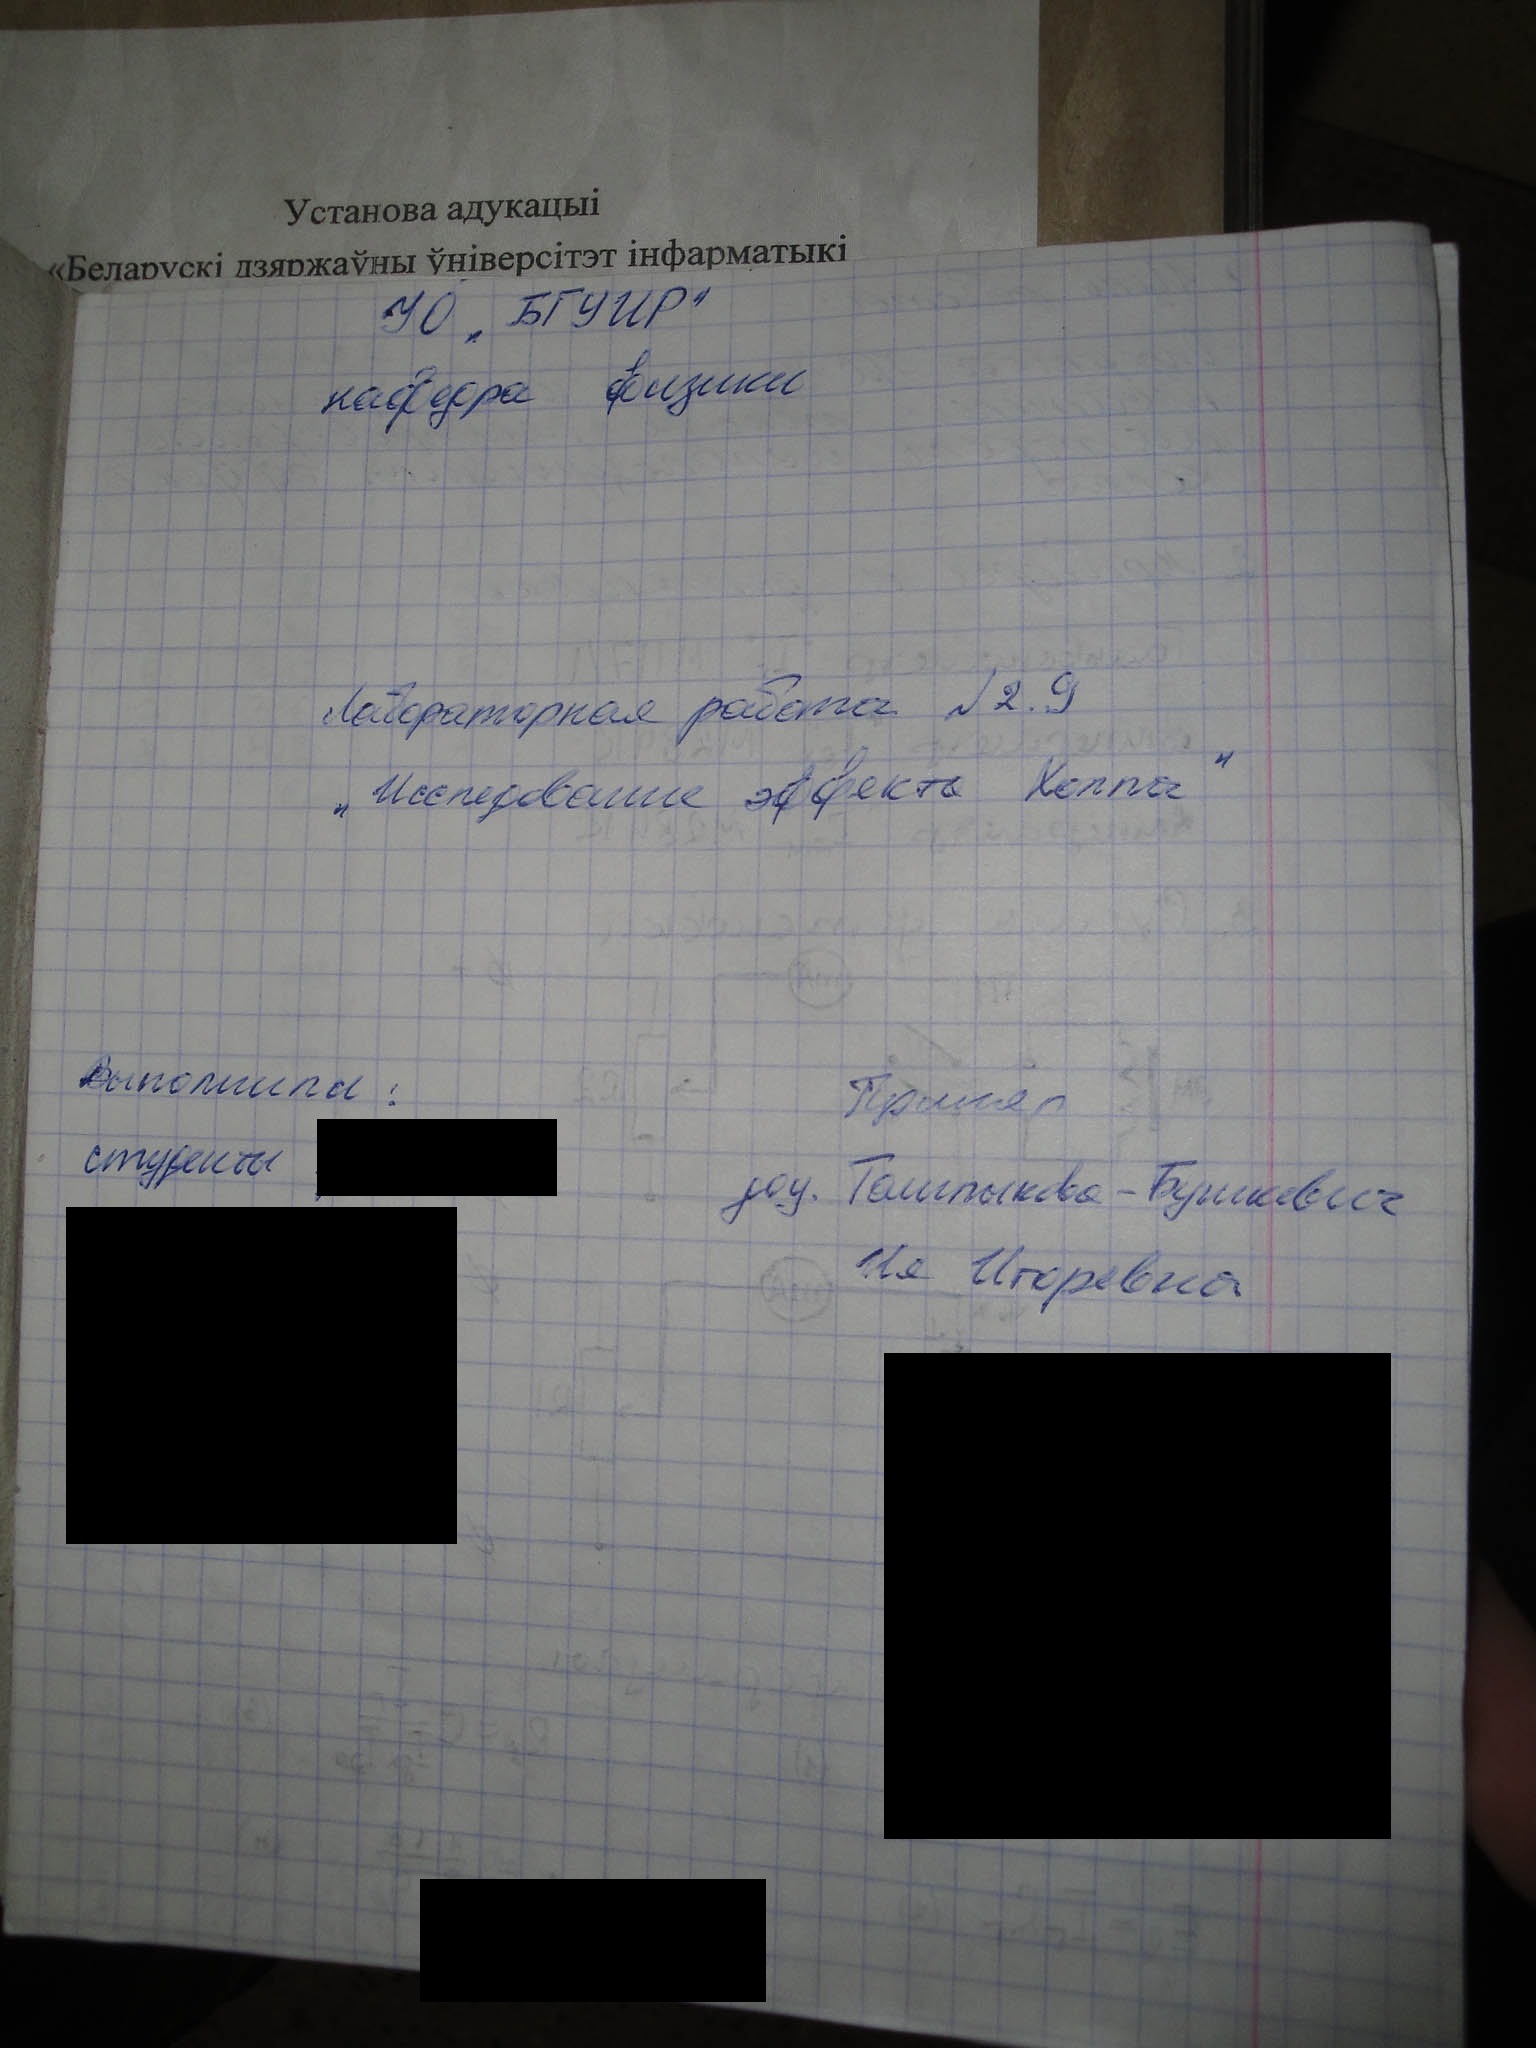 Установа адукацыі
«Беларускі дзяржаўны ўніверсітэт інфарматыкі
УО „БГУИР"
кафедра физики
Лабораторная работа №2.9
„Исследование эффекта Холла"
Выполнили:
студенты
Принял
доц. Ташлыкова-Бушкевич
Ия Игоревна